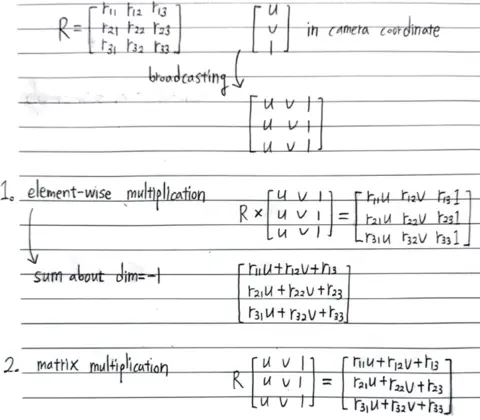 R = [ r11 r12 r13 ] [ u ]
[ r21 r22 r23 ] [ v ] in camera coordinate
[ r31 r32 r33 ] [ 1 ]
broadcasting
[ u v 1 ]
[ u v 1 ]
[ u v 1 ]
1. element-wise multiplication
R × [ u v 1 ] = [ r11u r12v r131 ]
[ u v 1 ] [ r21u r22v r231 ]
[ u v 1 ] [ r31u r32v r331 ]
sum about dim=-1
[ r11u+r12v+r13 ]
[ r21u+r22v+r23 ]
[ r31u+r32v+r33 ]
2. matrix multiplication
R [ u v 1 ] = [ r11u+r12v+r13 ]
[ u v 1 ] [ r21u+r22v+r23 ]
[ u v 1 ] [ r31u+r32v+r33 ]